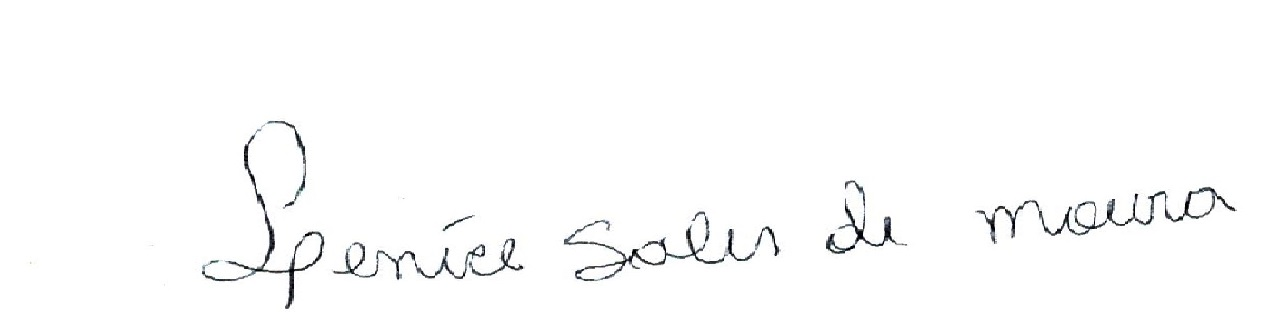 Lenice Sales de moura